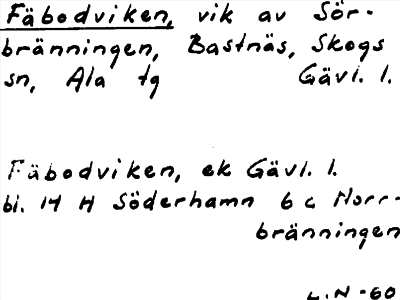 Fäbodviken, vik av Sör-
bränningen, Bastnäs, Skogs
sn, Ala tg Gävl. l.
Fäbodviken, ek Gävl. l.
bl. 14 H Söderhamn 6 c Norr-
bränningen
L.N -60